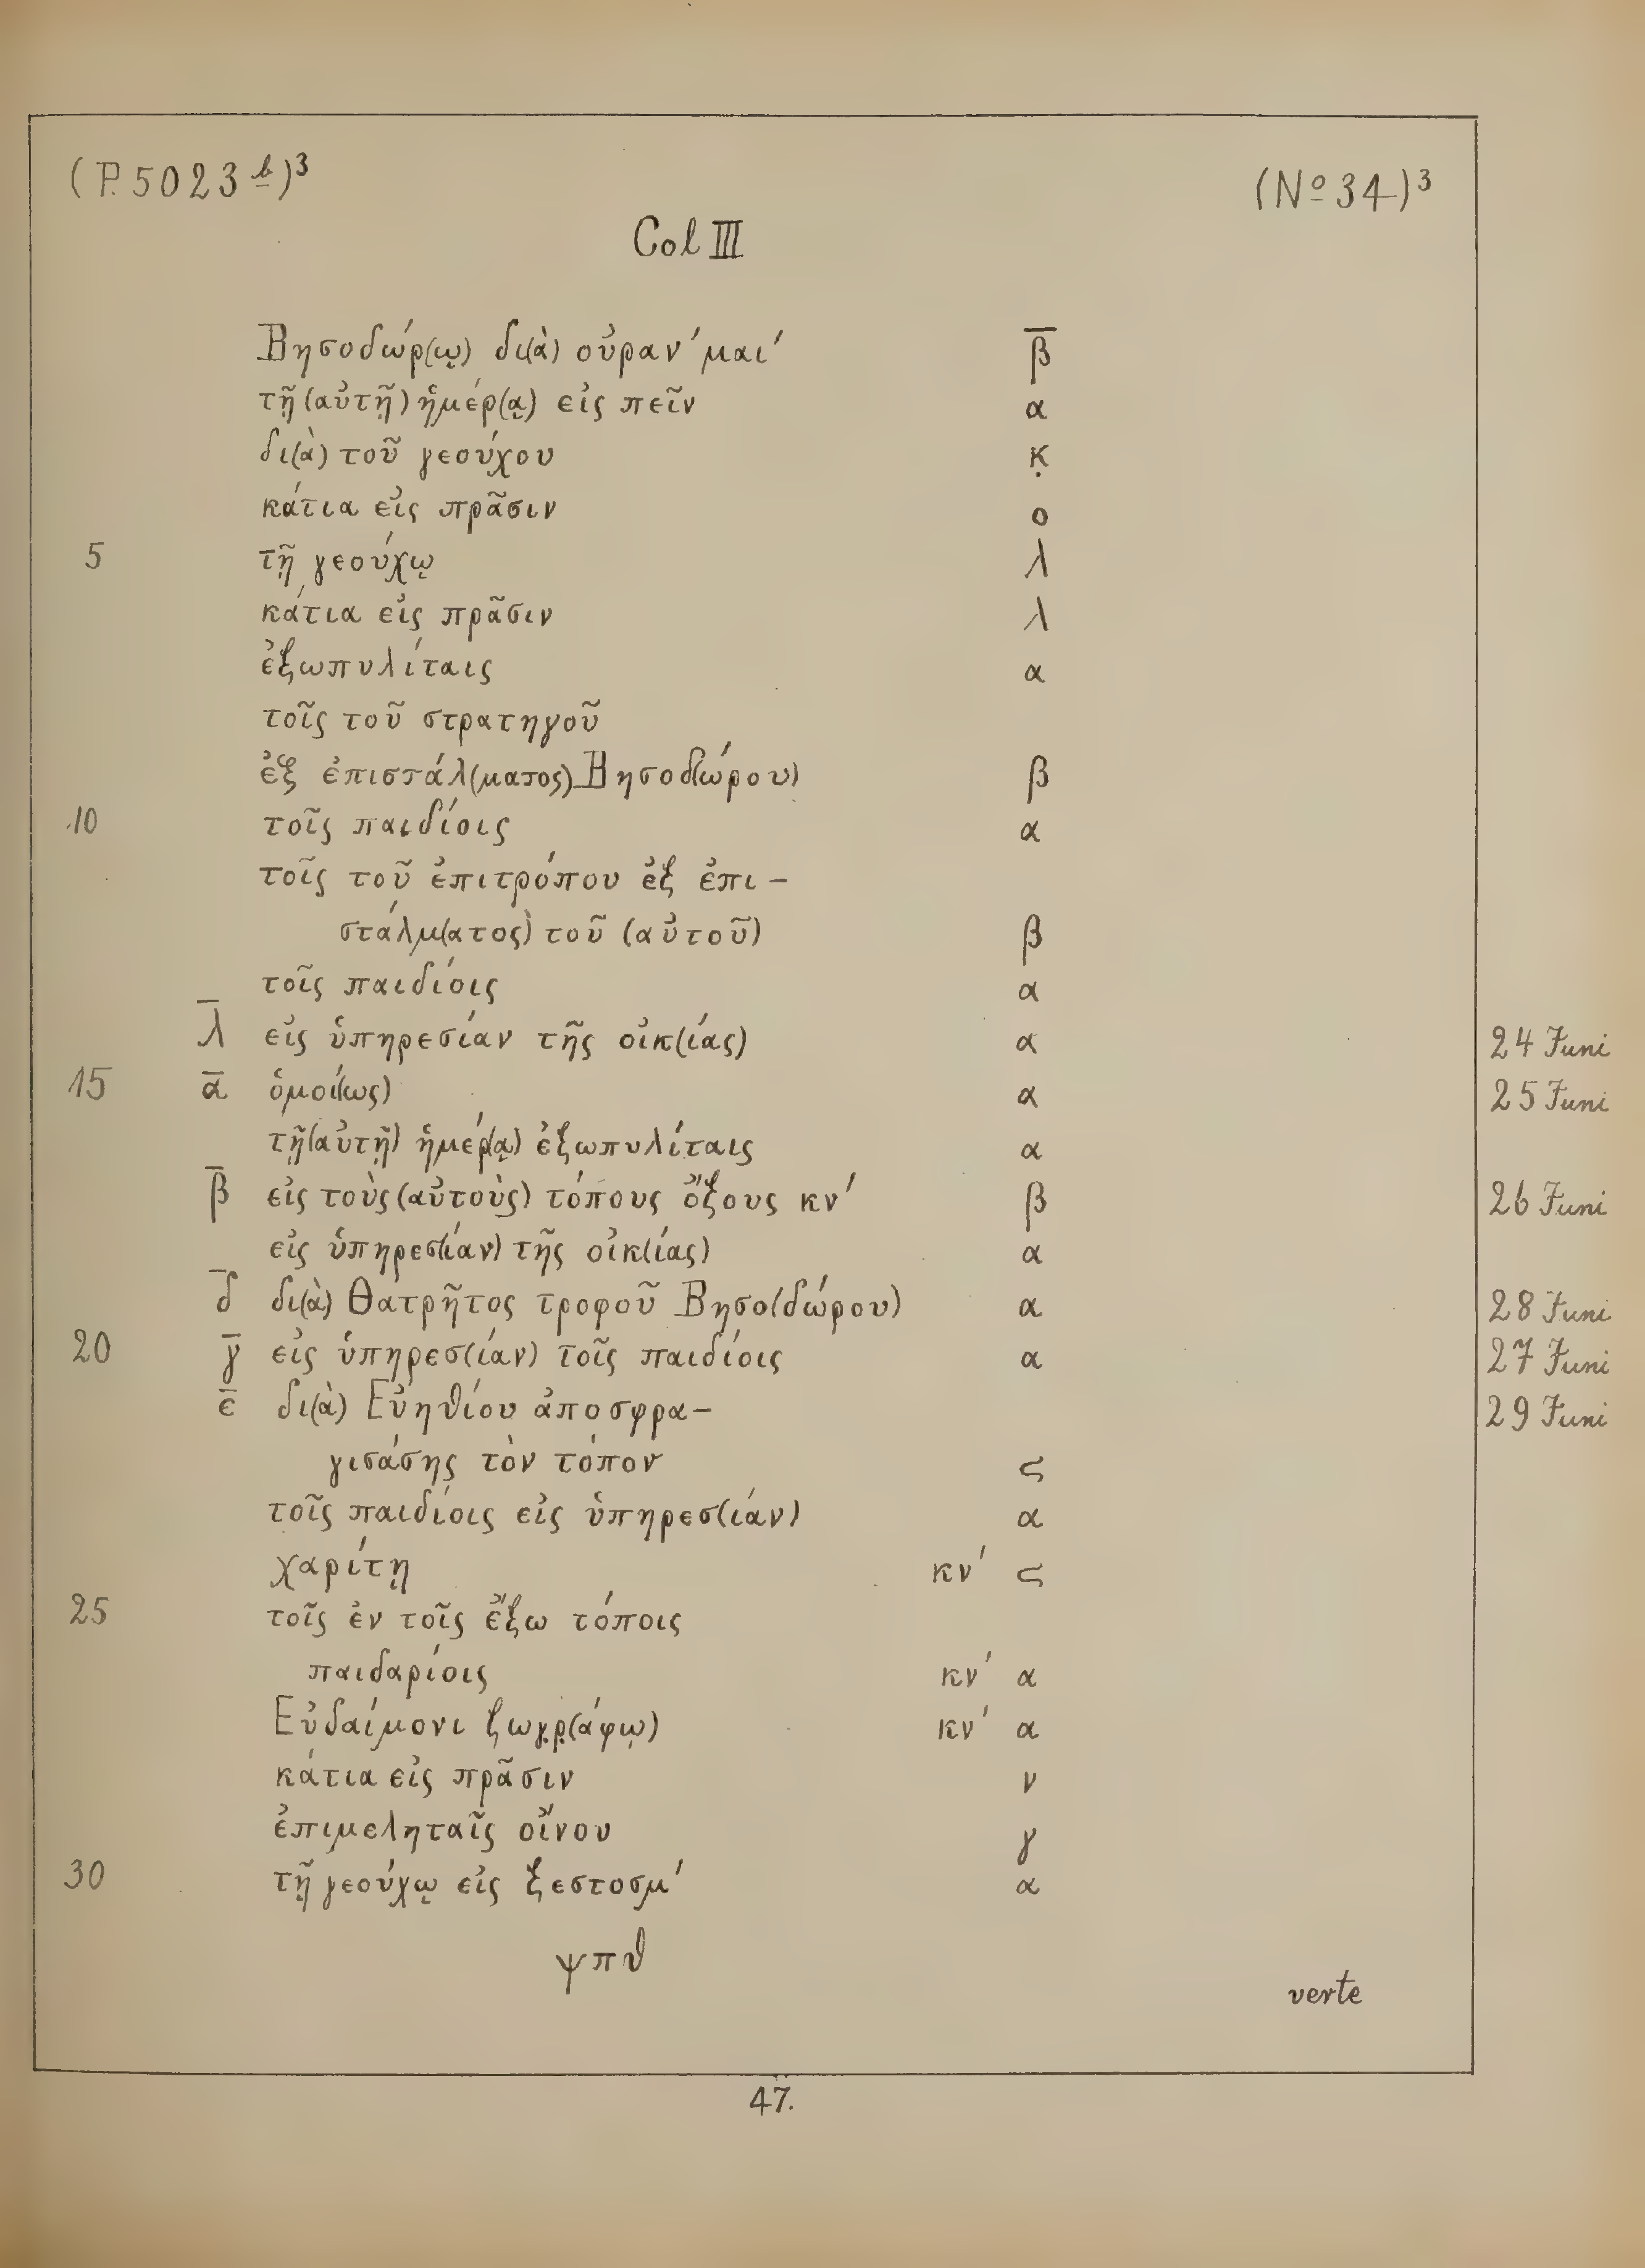 (P. 5023 b)³ (Nº 34)³
Col III
Βησοδώρ(ῳ) δι(ὰ) οὐραν' μαι' β̅
τῇ (αὐτῇ) ἡμέρ(ᾳ) εἰς πεῖν α
δι(ὰ) τοῦ γεούχου κ̣
κάτια εἰς πρᾶσιν ο
5 τῇ γεούχῳ λ
κάτια εἰς πρᾶσιν λ
ἐξωπυλίταις α
τοῖς τοῦ στρατηγοῦ
ἐξ ἐπιστάλ(ματος) Βησοδ(ώρου) β
10 τοῖς παιδίοις α
τοῖς τοῦ ἐπιτρόπου ἐξ ἐπι-
στάλμ(ατος) τοῦ (αὐτοῦ) β
τοῖς παιδίοις α
λ̅ εἰς ὑπηρεσίαν τῆς οἰκ(ίας) α 24 Juni
15 α̅ ὁμοί(ως) α 25 Juni
τῇ (αὐτῇ) ἡμέρ(ᾳ) ἐξωπυλίταις α
β̅ εἰς τοὺς (αὐτοὺς) τόπους ὄξους κν' β 26 Juni
εἰς ὑπηρεσ(ίαν) τῆς οἰκ(ίας) α
δ̅ δι(ὰ) Θατρῆτος τροφοῦ Βησο(δώρου) α 28 Juni
20 γ̅ εἰς ὑπηρεσ(ίαν) τοῖς παιδίοις α 27 Juni
ε̅ δι(ὰ) Εὐηθίου ἀποσφρα-
29 Juni
γισάσης τὸν τόπον ς
τοῖς παιδίοις εἰς ὑπηρεσ(ίαν) α
χαρίτῃ κν' ς
25 τοῖς ἐν τοῖς ἔξω τόποις
παιδαρίοις κν' α
Εὐδαίμονι ζωγ̣ρ̣(άφῳ) κν' α
κάτια εἰς πρᾶσιν ν
ἐπιμεληταῖς οἴνου γ
30 τῇ γεούχῳ εἰς ξεστοσμ' α
ψπθ
verte
47.